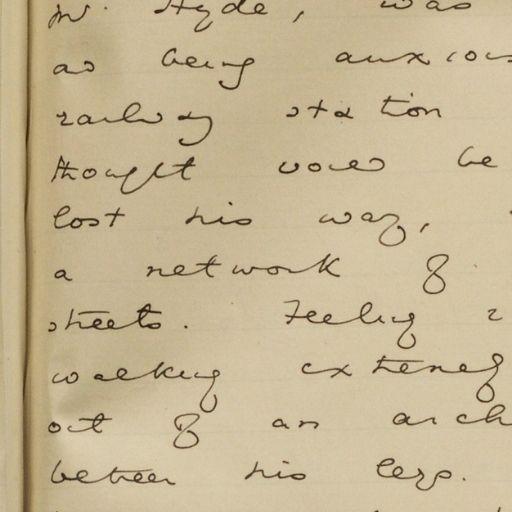 Mr. Hyde, was
as being anxious
railway station
thought would be
lost his way,
a network of
streets. Feeling
walking extremely
out of an arch
between his legs.